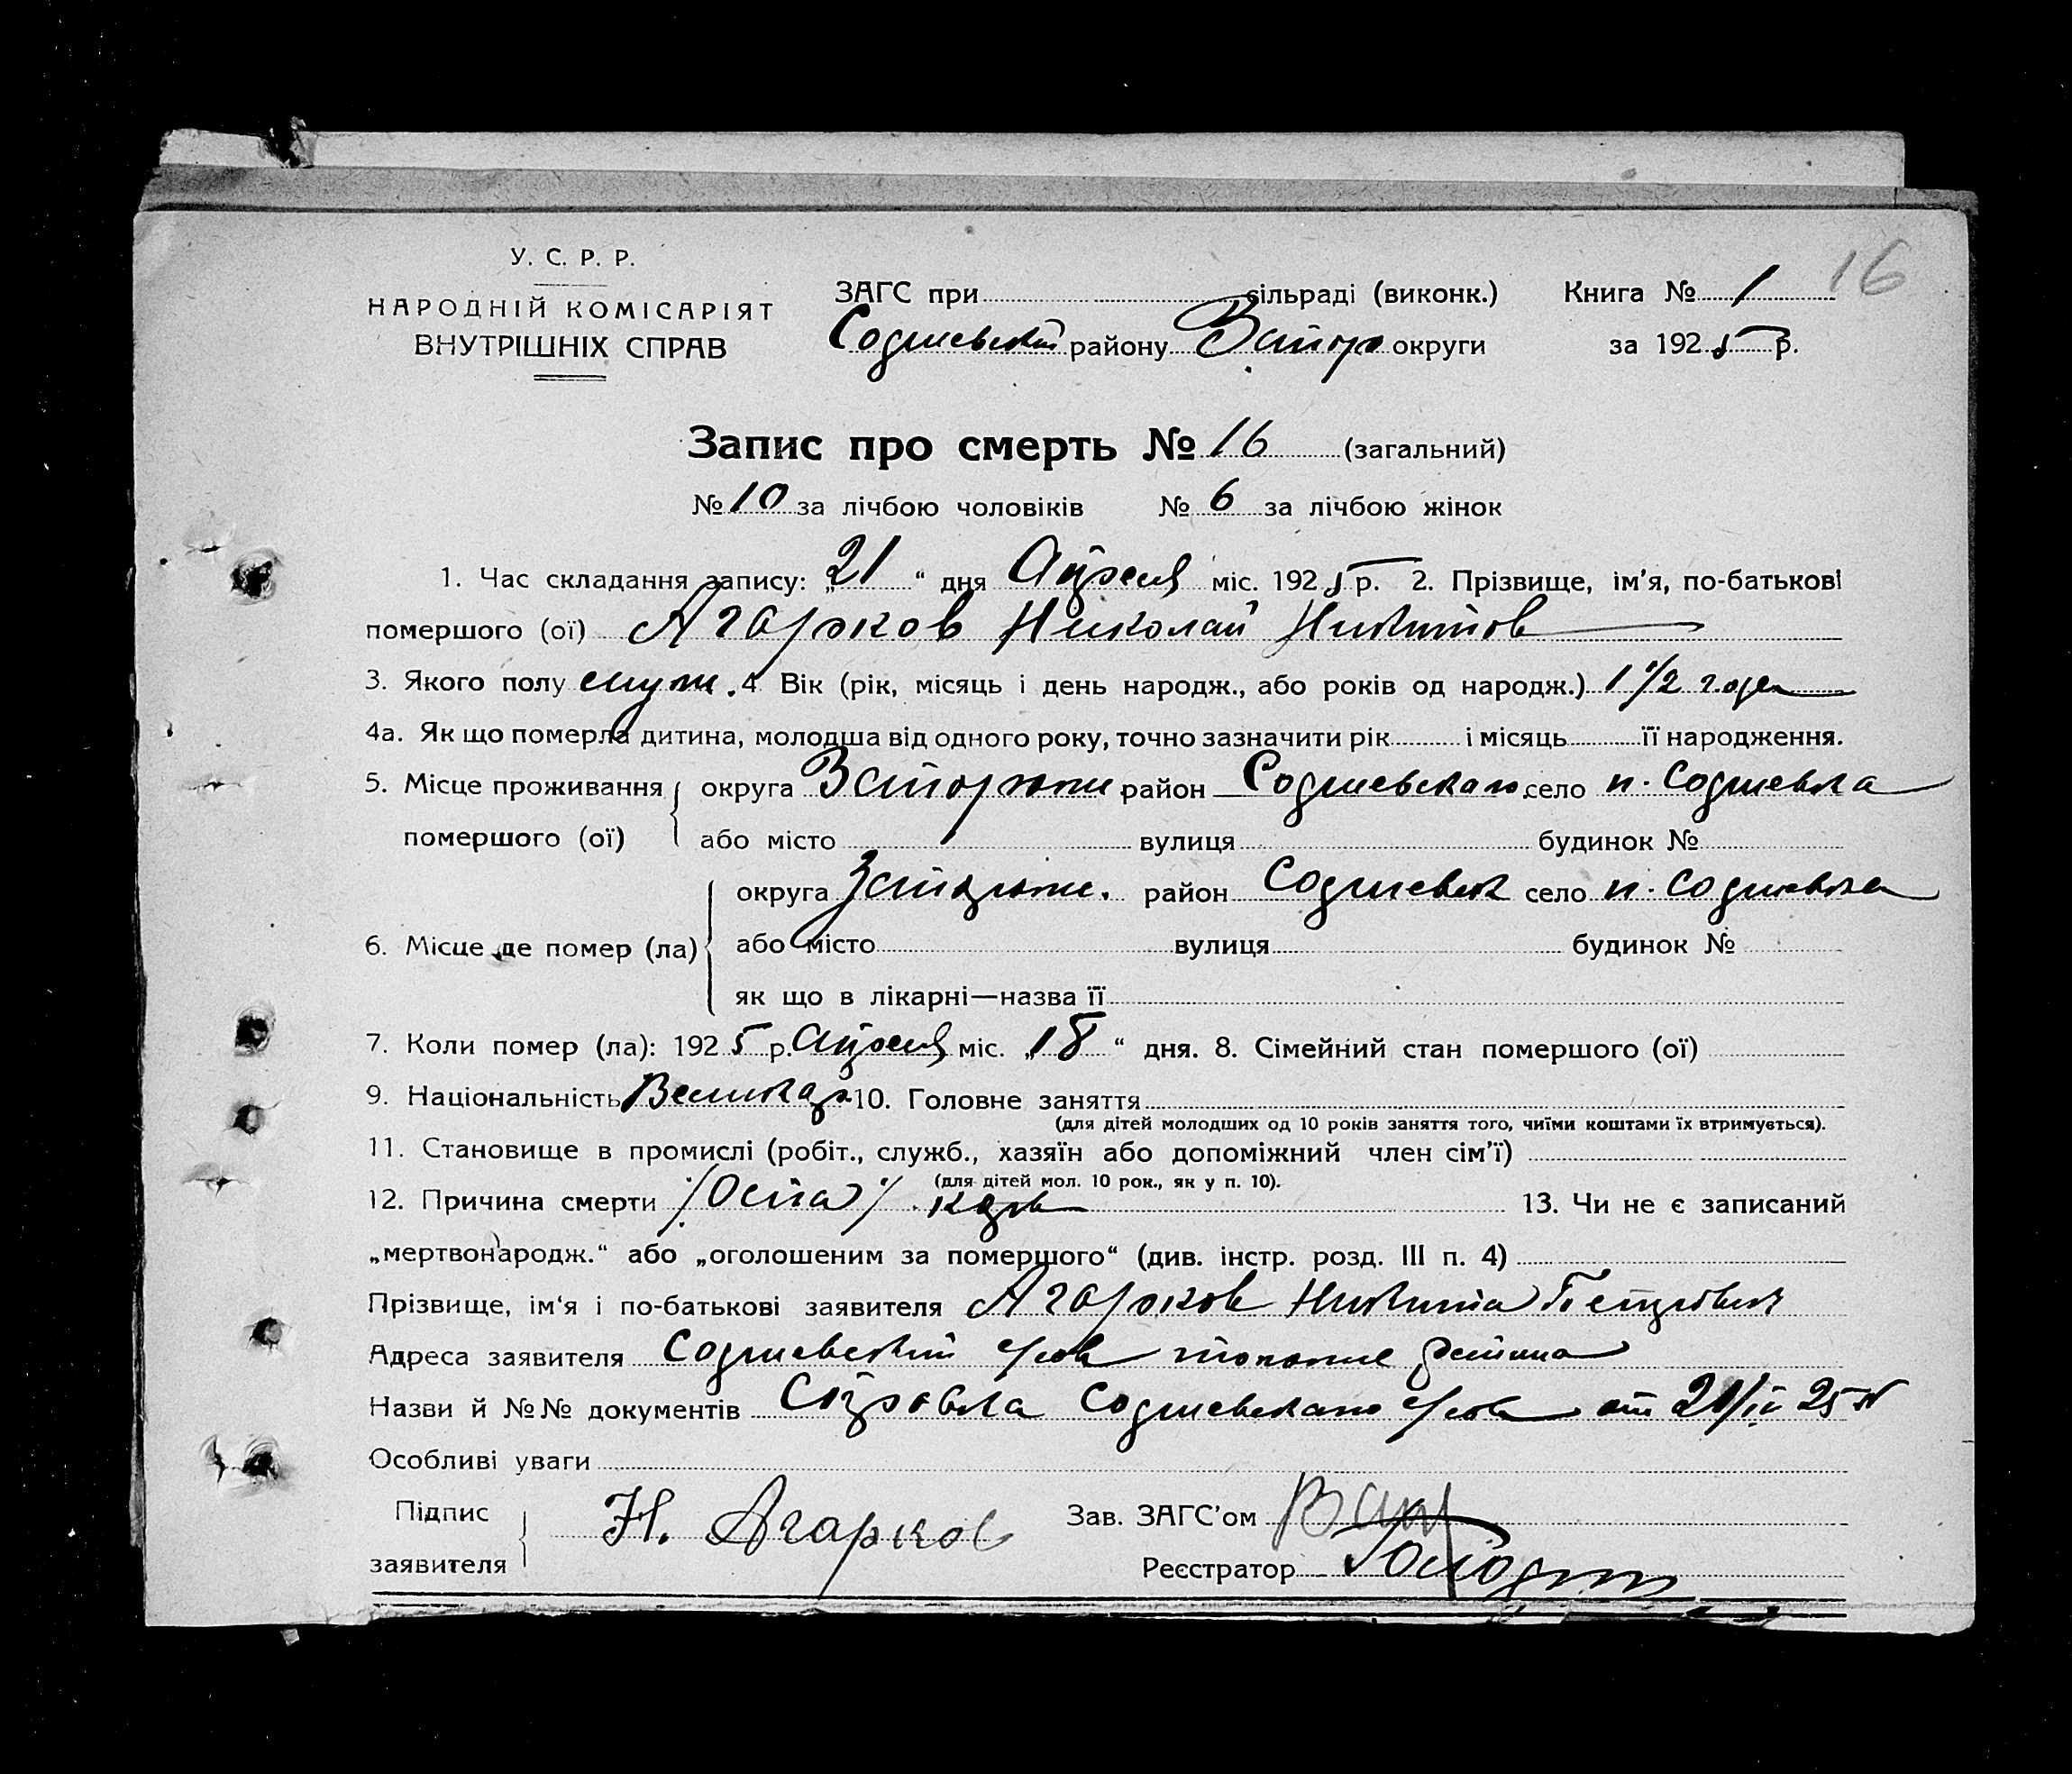 У. С. Р. Р.
НАРОДНІЙ КОМІСАРІЯТ
ВНУТРІШНІХ СПРАВ
16
ЗАГС при сільраді (виконк.) Книга № 1
Софиевский району Запор округи за 1925 р.
Запис про смерть № 16 (загальний)
№ 10 за лічбою чоловіків № 6 за лічбою жінок
1. Час складання запису: „21“ дня Апреля міс. 1925 р. 2. Прізвище, ім'я, по-батькові
помершого (ої) Агарков Николай Никитов
3. Якого полу муж. 4 Вік (рік, місяць і день народж., або років од народж.) 1 1/2 года
4а. Як що померла дитина, молодша від одного року, точно зазначити рік і місяць її народження.
5. Місце проживання помершого (ої) округа Запорожи район Софиевскаго село п. Софиевка
або місто вулиця будинок №
6. Місце де помер (ла) округа Запорожи. район Софиевск село п. Софиевка
або місто вулиця будинок №
як що в лікарні—назва її
7. Коли помер (ла): 1925 р. Апреля міс. „18“ дня. 8. Сімейний стан помершого (ої)
9. Національність Великор 10. Головне заняття
(для дітей молодших од 10 років заняття того, чиїми коштами їх втримується).
11. Становище в промислі (робіт., служб., хазяїн або допоміжний член сім'ї)
(для дітей мол. 10 рок., як у п. 10).
12. Причина смерти /Оспа/ 13. Чи не є записаний
„мертвонародж.“ або „оголошеним за помершого“ (див. інстр. розд. III п. 4)
Прізвище, ім'я і по-батькові заявителя Агарков Никита Петрович
Адреса заявителя Софиевский р/сов
Назви й №№ документів Справка Софиевскаго р/сов от 21/IV 25
Особливі уваги
Підпис заявителя Н. Агарков Зав. ЗАГС'ом
Реєстратор